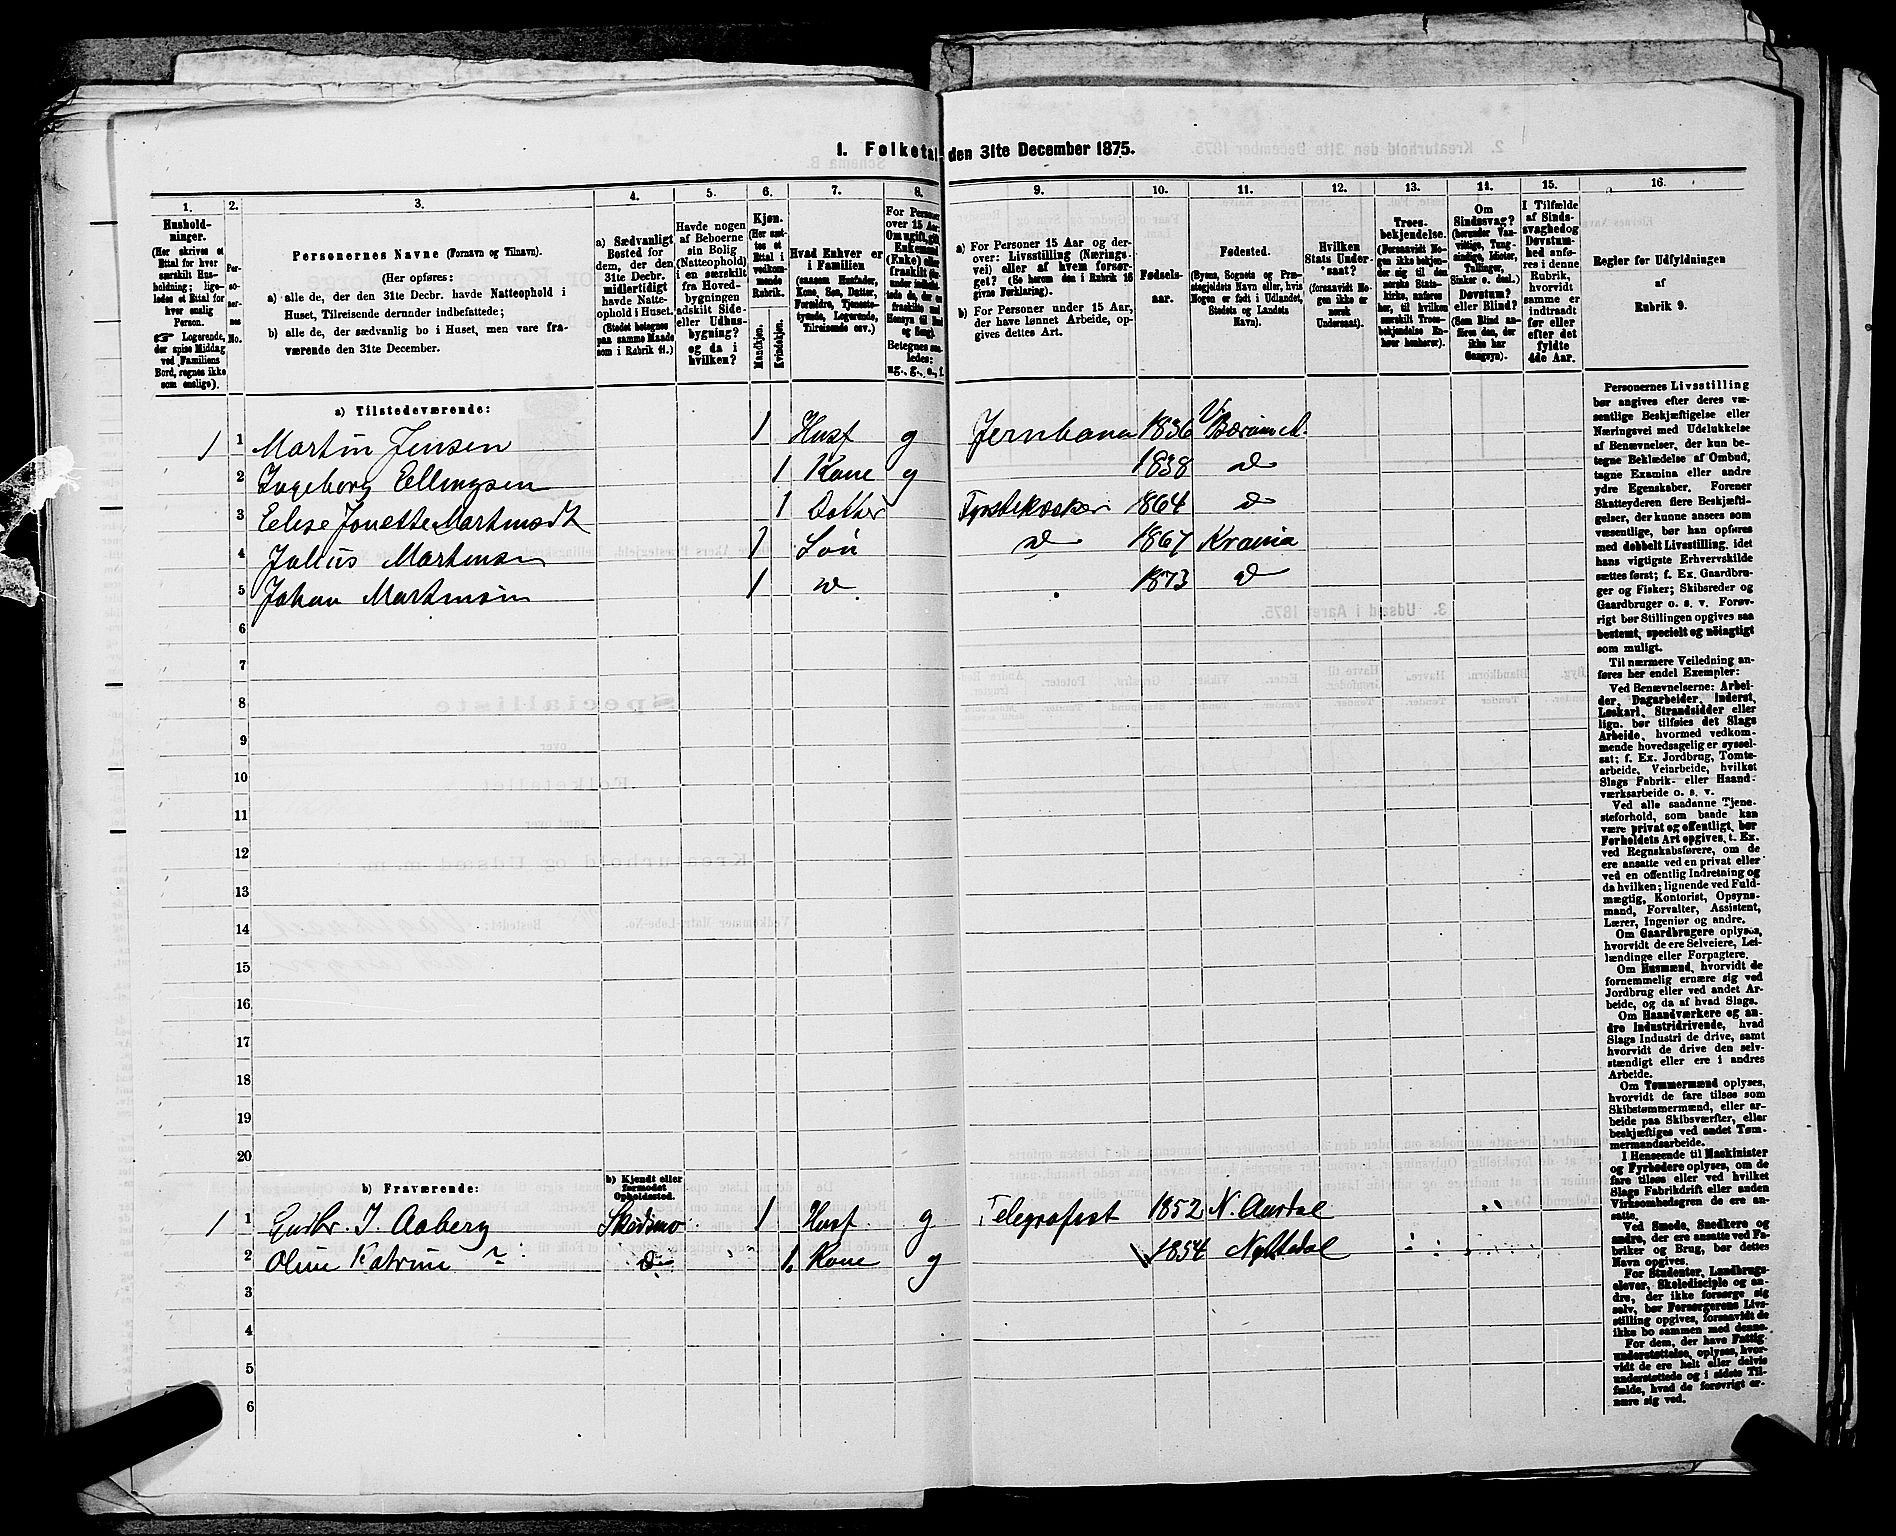 1. Folketal den 31te December 1875.
1. 2. 3. 4. 5. 6. 7. 8. 9. 10. 11. 12. 13. 14. 15. 16.
Husholdninger.
(Her skrives et Ettal for hver særskilt Husholdning; ligeledes et Ettal for hver enslig Person.
Logerende, der spise Middag ved Familiens Bord, regnes ikke som enslige).
Personernes No.
Personernes Navne (Fornavn og Tilnavn).
(Her opføres:
a) alle de, der den 31te Decbr. havde Natteophold i Huset, Tilreisende derunder indbefattede;
b) alle de, der sædvanlig bo i Huset, men vare fraværende den 31te December.
a) Sædvanligt Bosted for dem, der den 31te Decbr. midlertidigt havde Natteophold i Huset.
(Stedet betegnes paa samme Maade som i Rubrik 11.)
Havde nogen af Beboerne sin Bolig (Natteophold) i en særskilt fra Hovedbygningen adskilt Side- eller Udhusbygning? og da i hvilken?
Kjøn.
(Her sættes et Ettal i vedkommende Rubrik.
Mandkjøn.
Kvindekjøn.
Hvad Enhver er i Familien
(saasom Husfader, Kone, Søn, Datter, Forældre, Tjenestetyende, Logerende, Tilreisende osv.)
For Personer over 15 Aar: Om ugift, gift Enkemand (Enke) eller fraskilt
Betegnes saaledes:
ug., g., e., f.
a) For Personer 15 Aar og derover: Livsstilling (Næringsvei) eller af hvem forsørget? (Se herom den i Rubrik 16 givne Forklaring).
b) For Personer under 15 Aar, der have lønnet Arbeide, opgives dettes Art.
Fødselsaar.
Fødested.
(Byens, Sognets og Præstegjeldets Navn eller, hvis Nogen er født i Udlandet, Stedets og Landets Navn).
Hvilken Stats Undersaat?
(forsaavidt Nogen ikke er norsk Undersaat).
Troesbekjendelse.
(Forsaavidt Nogen ikke bekjender sig til den norske Statskirke, anføres her, til hvilken særskilt Troesbekjendelse Enhver henhører).
Om Sindssvag? (herunder Vanvittige, Tungsindige, Idioter, Tullinger, Sinker o. desl.) Døvstum? eller Blind? (Som Blind anføres den, der ikke har Gangsyn).
I Tilfælde af Sindssvaghed og Døvstumhed anføres i denne Rubrik, hvorvidt samme er indtraadt før eller efter det fyldte 4de Aar.
Regler for Udfyldningen af Rubrik 9.
a) Tilstedeværende:
1 1 Martin Jensen 1 Husf g Jernbane 1836 V Bærum A.
2 Ingeborg Ellingsen 1 Kone g 1838 do
3 Elise Jonette Martinsdt 1 Datter 1864 do
4 Julius Martinsen 1 Søn do 1867 Krania
5 Johan Martinsen 1 do 1873 do
6
7
8
9
10
11
12
13
14
15
16
17
18
19
20
b) Fraværende:
b) Kjendt eller formodet Opholdssted.
1 1 Gudbr. I. Aaberg Skedsmo 1 Husf g Telegrafist 1852 N. Aurdal
2 Oline Katrine do 1 Kone g 1854 Nyttedal
3
4
5
6
Personernes Livsstilling bør angives efter deres væsentlige Beskjæftigelse eller Næringsvei med Udelukkelse af Benævnelser, der kun betegne Beklædelse af Ombud, tagne Examina eller andre ydre Egenskaber. Forener Skatteyderen flere Beskjæftigelser, der kunne ansees som væsentlige, bør han opføres med dobbelt Livsstilling, idet hans vigtigste Erhvervskilde sættes først; f. Ex. Gaardbruger og Fisker; Skibsreder og Gaardbruger o. s. v. Forøvrigt bør Stillingen opgives saa bestemt, specielt og nöiagtigt som muligt.
Til nærmere Veiledning anføres her endel Exempler:
Ved Benævnelserne: Arbeider, Dagarbeider, Inderst, Løskarl, Strandsidder eller lign. bør tilføies det Slags Arbeide, hvormed vedkommende hovedsagelig er sysselsat; f. Ex. Jordbrug, Tomtearbeide, Veiarbeide, hvilket Slags Fabrik- eller Haandværksarbeide o. s. v.
Ved alle saadanne Tjenesteforhold, som baade kan være privat og offentligt, bør Forholdets Art opgives, t. Ex. ved Regnskabsførere, om de ere ansatte ved en privat eller ved en offentlig Indretning og da hvilken; lignende ved Fuldmægtig, Kontorist, Opsynsmand, Forvalter, Assistent, Lærer, Ingeniør og andre.
Om Gaardbrugere oplyses, hvorvidt de ere Selveiere, Leilændinge eller Forpagtere.
Om Husmænd, hvorvidt de fornemmelig ernære sig ved Jordbrug eller ved andet Arbeide, og da af hvad Slags.
Om Haandværkere og andre Industridrivende, hvad Slags Industri de drive, samt hvorvidt de drive den selvstændigt eller ere i andres Arbeide.
Om Tømmermænd oplyses, hvorvidt de fare tilsøs som Skibstømmermænd, eller arbeide paa Skibsværfter, eller beskjæftiges ved andet Tømmermandsarbeide.
I Henseende til Maskinister og Fyrbødere oplyses, om de fare tilsøs eller ved hvilket Slags Fabrikdrift eller anden Virksomhedsgren de ere ansatte.
Ved Smede, Snedkere og andre, der ere ansatte ved Fabriker og Brug, bør dettes Navn opgives.
For Studenter, Landbrugselever, Skoledisciple og andre, der ikke forsørge sig selv, bør Forsørgerens Livsstilling opgives, forsaavidt de ikke bo sammen med denne.
For dem, der have Fattigunderstøttelse, oplyses, hvorvidt de ere helt eller delvis understøttede og i sidste Tilfælde, hvad de forøvrigt ernære sig ved.